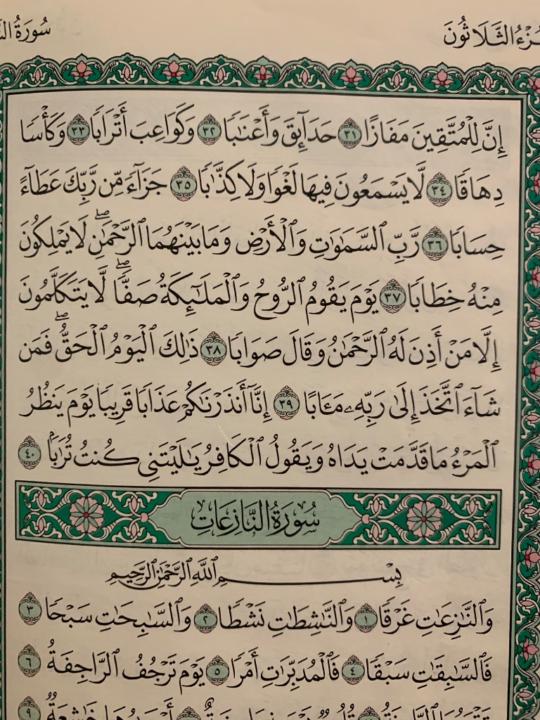 الثَّلَاثُونَ
سُورَةُ
إِنَّ لِلْمُتَّقِينَ مَفَازًا ٣١ حَدَآئِقَ وَأَعْنَـٰبًا ٣٢ وَكَوَاعِبَ أَتْرَابًا ٣٣ وَكَأْسًا
دِهَاقًا ٣٤ لَّا يَسْمَعُونَ فِيهَا لَغْوًا وَلَا كِذَّٰبًا ٣٥ جَزَآءً مِّن رَّبِّكَ عَطَآءً
حِسَابًا ٣٦ رَّبِّ ٱلسَّمَـٰوَٰتِ وَٱلْأَرْضِ وَمَا بَيْنَهُمَا ٱلرَّحْمَـٰنِ ۖ لَا يَمْلِكُونَ
مِنْهُ خِطَابًا ٣٧ يَوْمَ يَقُومُ ٱلرُّوحُ وَٱلْمَلَـٰٓئِكَةُ صَفًّا ۖ لَّا يَتَكَلَّمُونَ
إِلَّا مَنْ أَذِنَ لَهُ ٱلرَّحْمَـٰنُ وَقَالَ صَوَابًا ٣٨ ذَٰلِكَ ٱلْيَوْمُ ٱلْحَقُّ ۖ فَمَن
شَآءَ ٱتَّخَذَ إِلَىٰ رَبِّهِۦ مَـَٔابًا ٣٩ إِنَّآ أَنذَرْنَـٰكُمْ عَذَابًا قَرِيبًا يَوْمَ يَنظُرُ
ٱلْمَرْءُ مَا قَدَّمَتْ يَدَاهُ وَيَقُولُ ٱلْكَافِرُ يَـٰلَيْتَنِى كُنتُ تُرَٰبًۢا ٤٠
سُورَةُ النَّازِعَاتِ
بِسْمِ ٱللَّهِ ٱلرَّحْمَـٰنِ ٱلرَّحِيمِ
وَٱلنَّـٰزِعَـٰتِ غَرْقًا ١ وَٱلنَّـٰشِطَـٰتِ نَشْطًا ٢ وَٱلسَّـٰبِحَـٰتِ سَبْحًا ٣
فَٱلسَّـٰبِقَـٰتِ سَبْقًا ٤ فَٱلْمُدَبِّرَٰتِ أَمْرًا ٥ يَوْمَ تَرْجُفُ ٱلرَّاجِفَةُ ٦